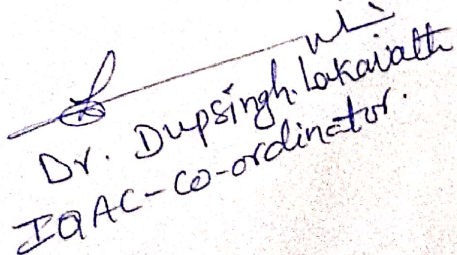 Dr. Dupsingh. Lakavath
IQAC-Co-ordinator.